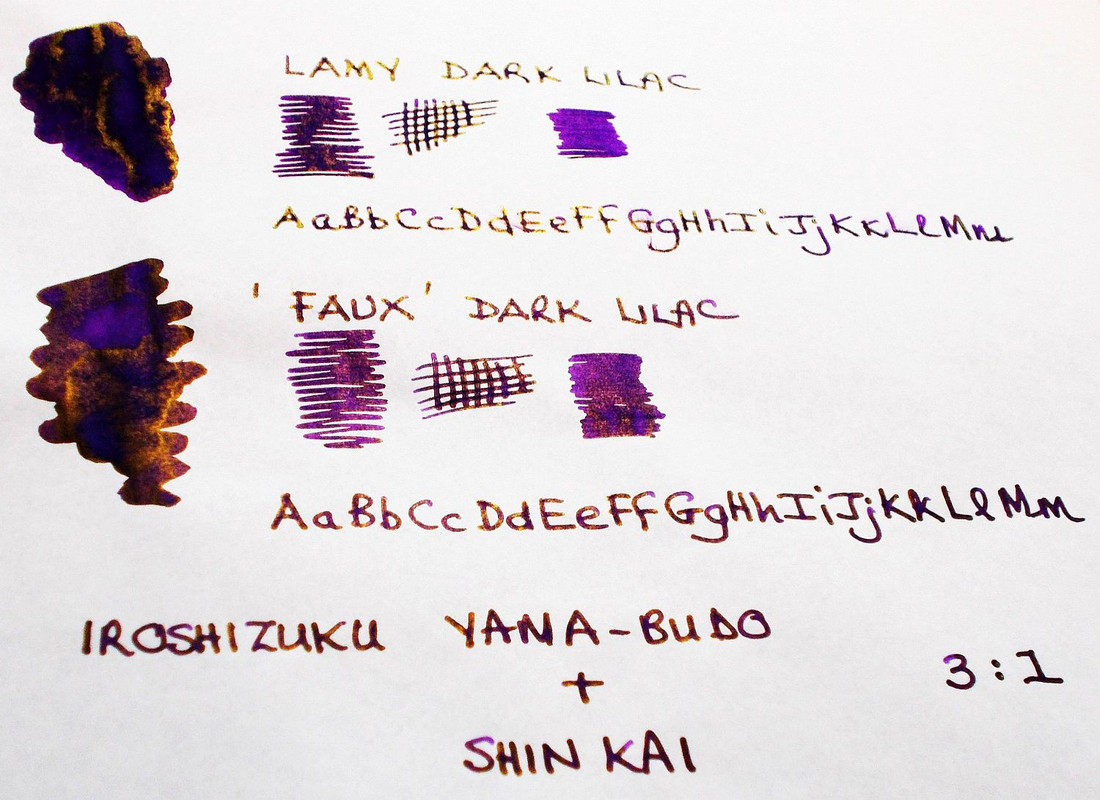 LAMY DARK LILAC
AaBbCcDdEeFfGgHhIiJjKkLlMm
'FAUX' DARK LILAC
AaBbCcDdEeFfGgHhIiJjKkLlMm
IROSHIZUKU YANA-BUDO
+
3:1
SHIN KAI